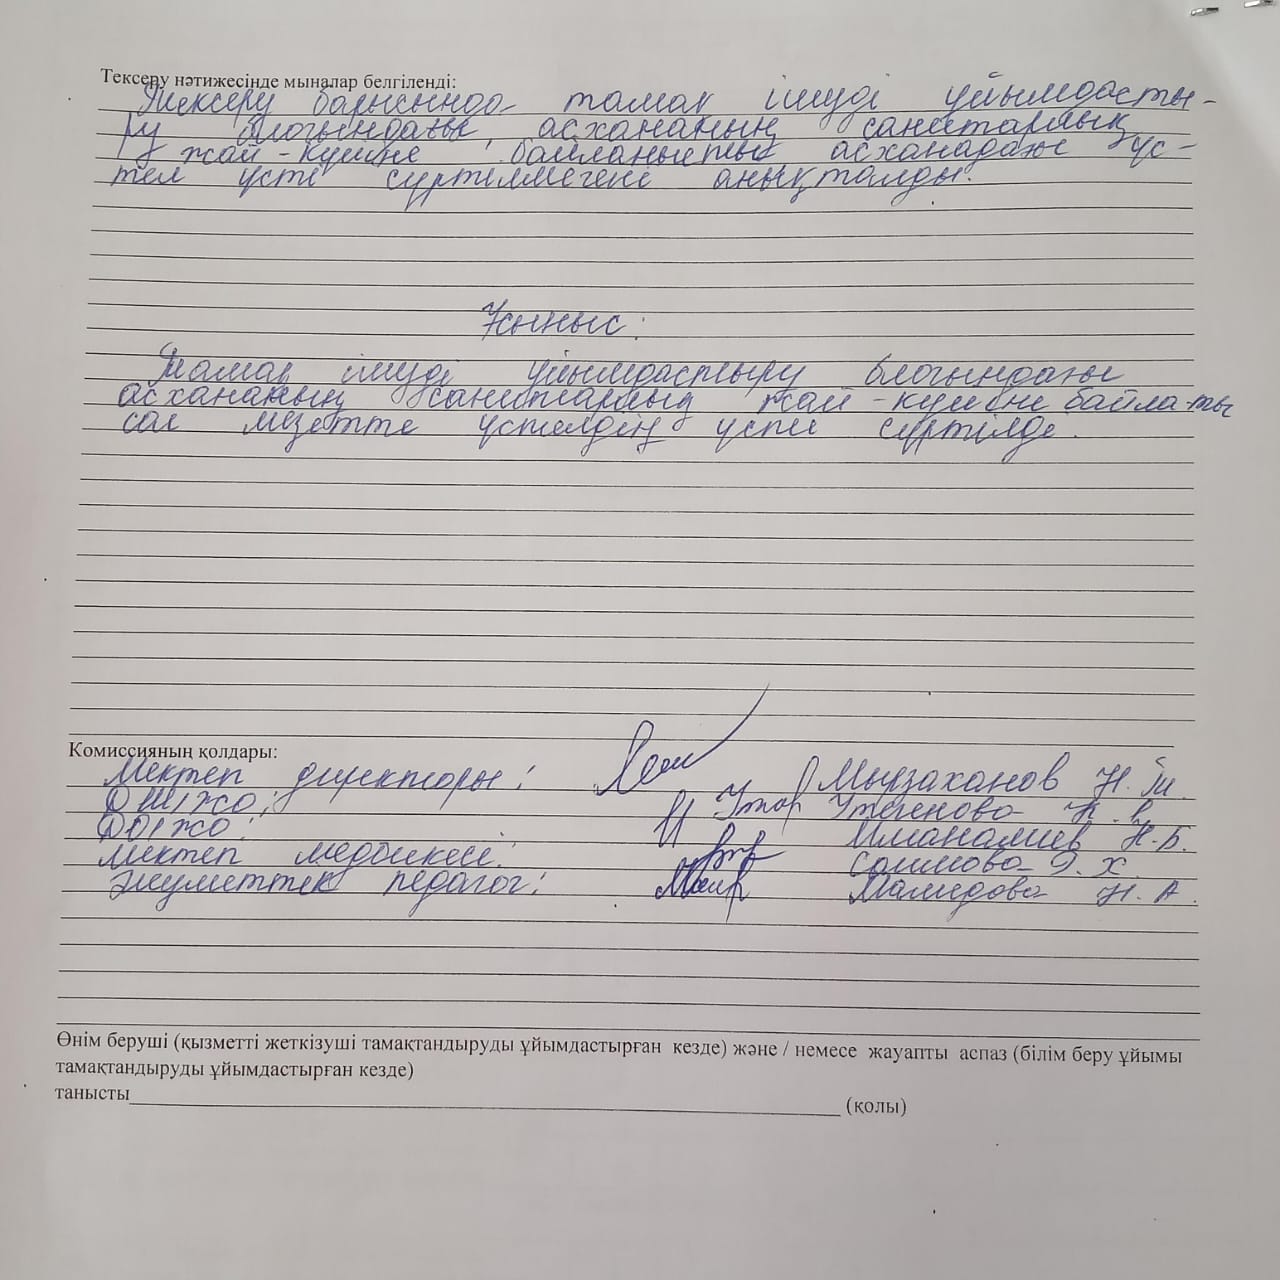 Тексеру нәтижесінде мыналар белгіленді:
Тексеру барысында тамақ ішуді ұйымдасты-
ру блогындағы асхананың санитарлық
жай-күйіне байланысты асханадағы үс-
тел үсті сүртілмегені анықталды.
Ұсыныс:
Тамақ ішуді ұйымдастыру блогындағы
асхананың санитарлық жай-күйіне байла-ты
сол мезетте үстелдің үсті сүртілді.
Комиссияның қолдары:
Мектеп директоры: Мырзаханов Н.Ш.
ДШІЖО: Утегенова К.
ДОІЖО: Иманалиев Н.Б.
Мектеп медбикесі: Салимова Э.Х.
Әлуметтек педагог: Мамидова Н.А.
Өнім беруші (қызметті жеткізуші тамақтандыруды ұйымдастырған кезде) және / немесе жауапты аспаз (білім беру ұйымы
тамақтандыруды ұйымдастырған кезде)
танысты (қолы)